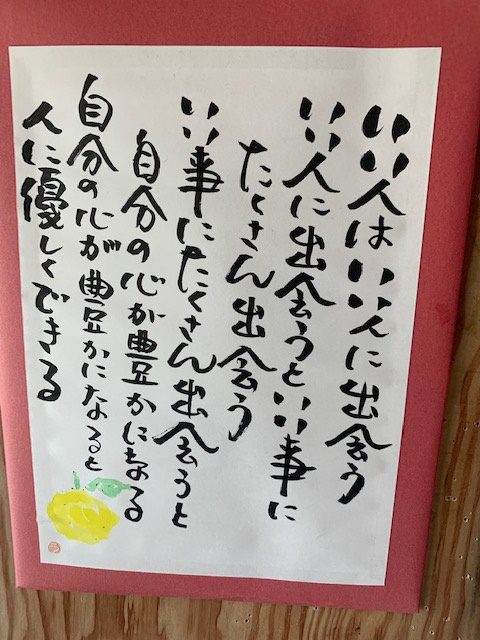 いい人はいい人に出会う
いい人に出会うといい事に
たくさん出会う
いい事にたくさん出会うと
自分の心が豊かになる
自分の心が豊かになると
人に優しくできる